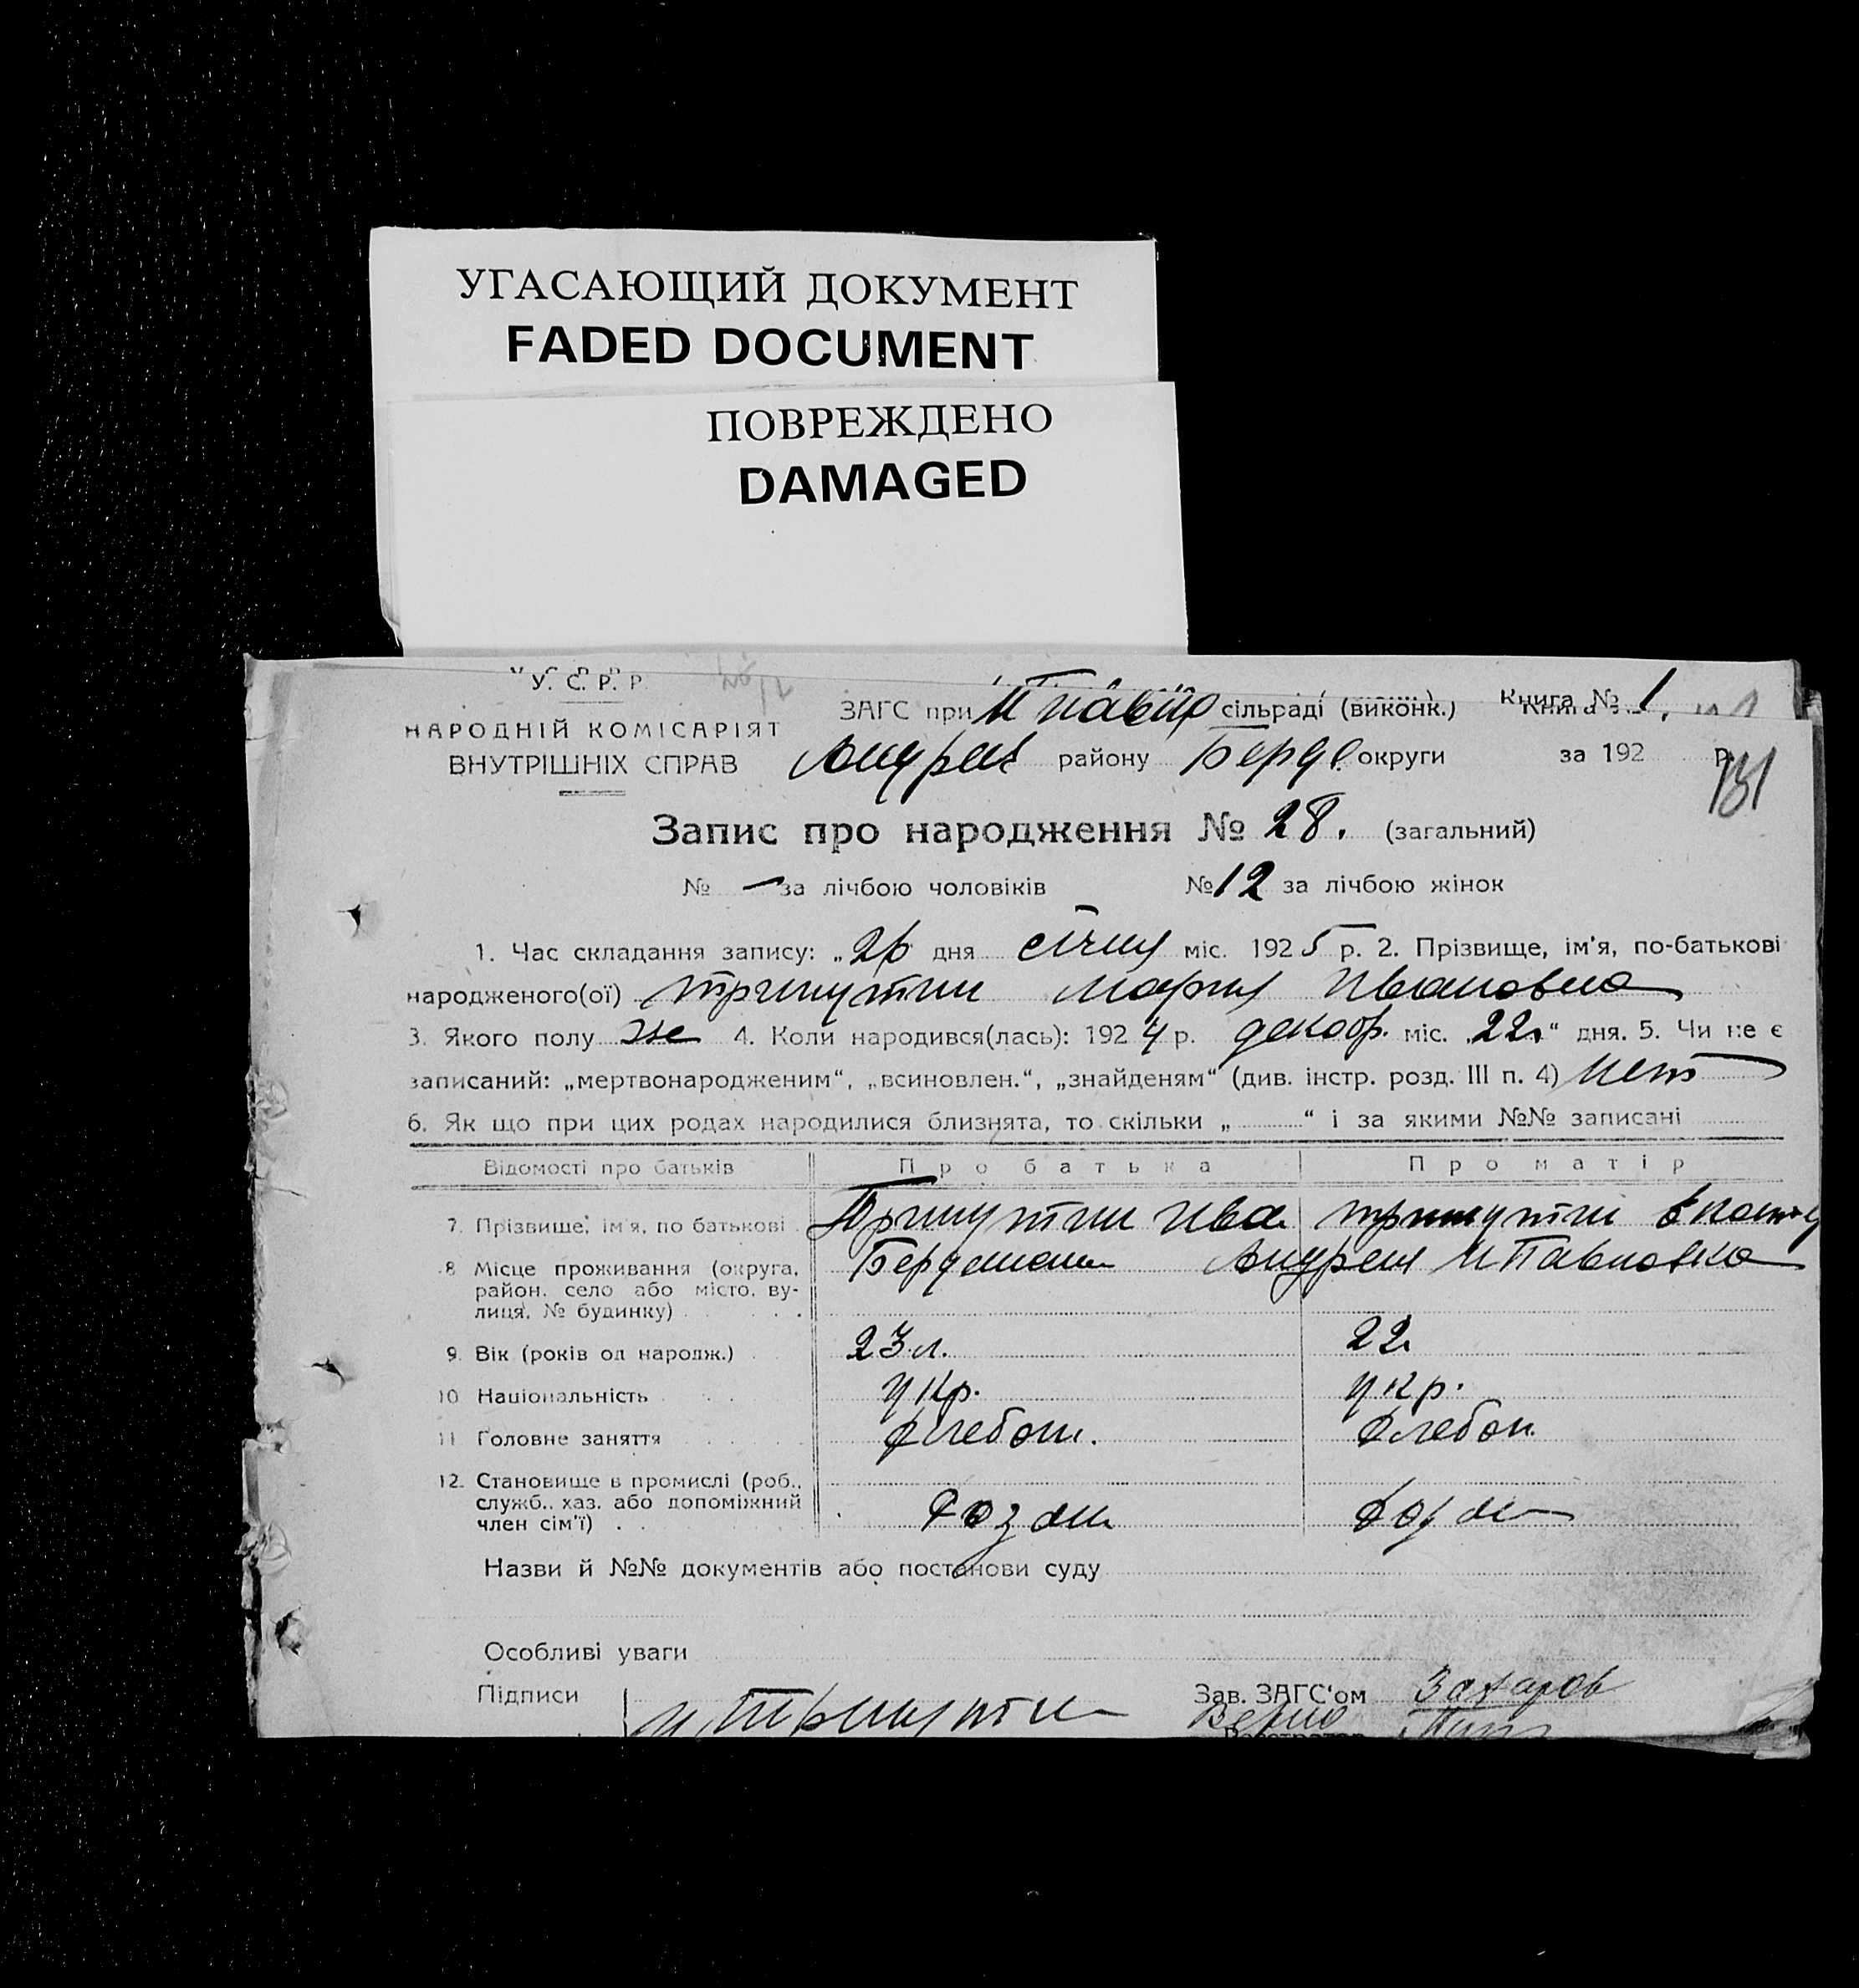 УГАСАЮЩИЙ ДОКУМЕНТ
FADED DOCUMENT
ПОВРЕЖДЕНО
DAMAGED
У. С. Р. Р.
НАРОДНІЙ КОМІСАРІЯТ
ВНУТРІШНІХ СПРАВ
ЗАГС при сільраді (виконк.) Книга № 1.
Андреев району Берд. округи за 192 р.
131
Запис про народження № 28. (загальний)
№ — за лічбою чоловіків № 12 за лічбою жінок
1. Час складання запису: „26 дня січня міс. 1925 р. 2. Прізвище, ім'я, по-батькові
народженого(ої) Мария Ивановна
3. Якого полу же 4. Коли народився(лась): 1924 р. декабр. міс. „22" дня. 5. Чи не є
записаний: „мертвонародженим“, „всиновлен.“, „знайденям“ (див. інстр. розд. III п. 4) нет
6. Як що при цих родах народилися близнята, то скільки „ “ і за якими №№ записані
Відомості про батьків Про батька Про матір
7. Прізвище, ім'я, по батькові Ива
8. Місце проживання (округа, Бердянск Андреев Н Павловка
район, село або місто, ву-
лиця, № будинку)
9. Вік (років од народж.) 23 л. 22
10. Національність укр. укр.
11. Головне заняття хлебоп. хлебоп.
12. Становище в промислі (роб.,
служб., хаз. або допоміжний
член сім'ї) хозяин
Назви й №№ документів або постанови суду
Особливі уваги
Підписи Зав. ЗАГС'ом Захаров
Верно